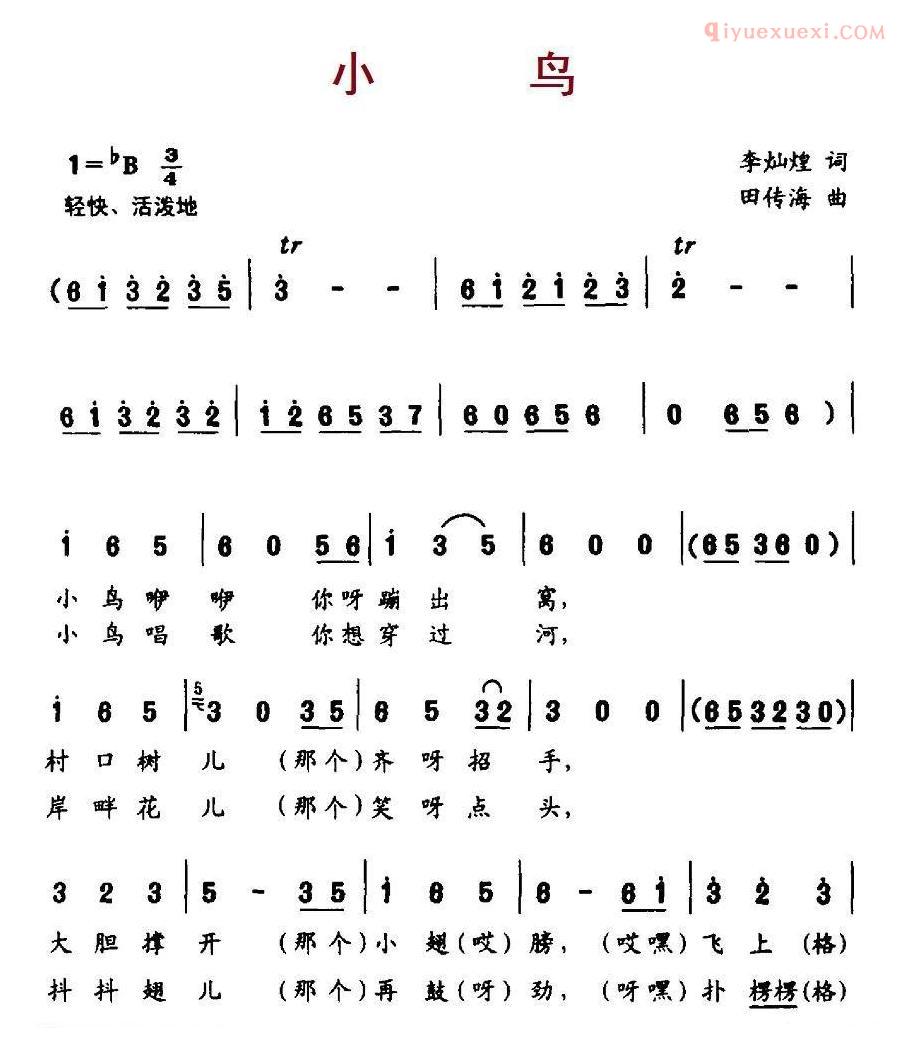 qiyuexuexi.COM
小 鸟
1=♭B 3/4
李灿煌 词
轻快、活泼地
田传海 曲
tr tr
(6i̇ 3̇2̇ 3̇5̇ | 3̇ - - | 6i̇ 2̇i̇ 2̇3̇ | 2̇ - - |
6i̇ 3̇2̇ 3̇2̇ | i̇2̇ 65 37 | 60 65 6 | 0 65 6 ) |
i̇ 6 5 | 6 0 56 | i̇ 3̇ 5 | 6 0 0 | (65 36 0) |
小 鸟 咿 咿 你 呀 蹦 出 窝,
小 鸟 唱 歌 你 想 穿 过 河,
i̇ 6 5 | 5 3 0 35 | 6 5 32 | 3 0 0 | (65 32 30) |
村 口 树 儿 (那 个) 齐 呀 招 手,
岸 畔 花 儿 (那 个) 笑 呀 点 头,
3 2 3 | 5 - 35 | i̇ 6 5 | 6 - 6i̇ | 3̇ 2̇ 3̇ |
大 胆 撑 开 (那 个) 小 翅 (哎) 膀, (哎 嘿) 飞 上 (格)
抖 抖 翅 儿 (那 个) 再 鼓 (呀) 劲, (呀 嘿) 扑 楞楞 (格)